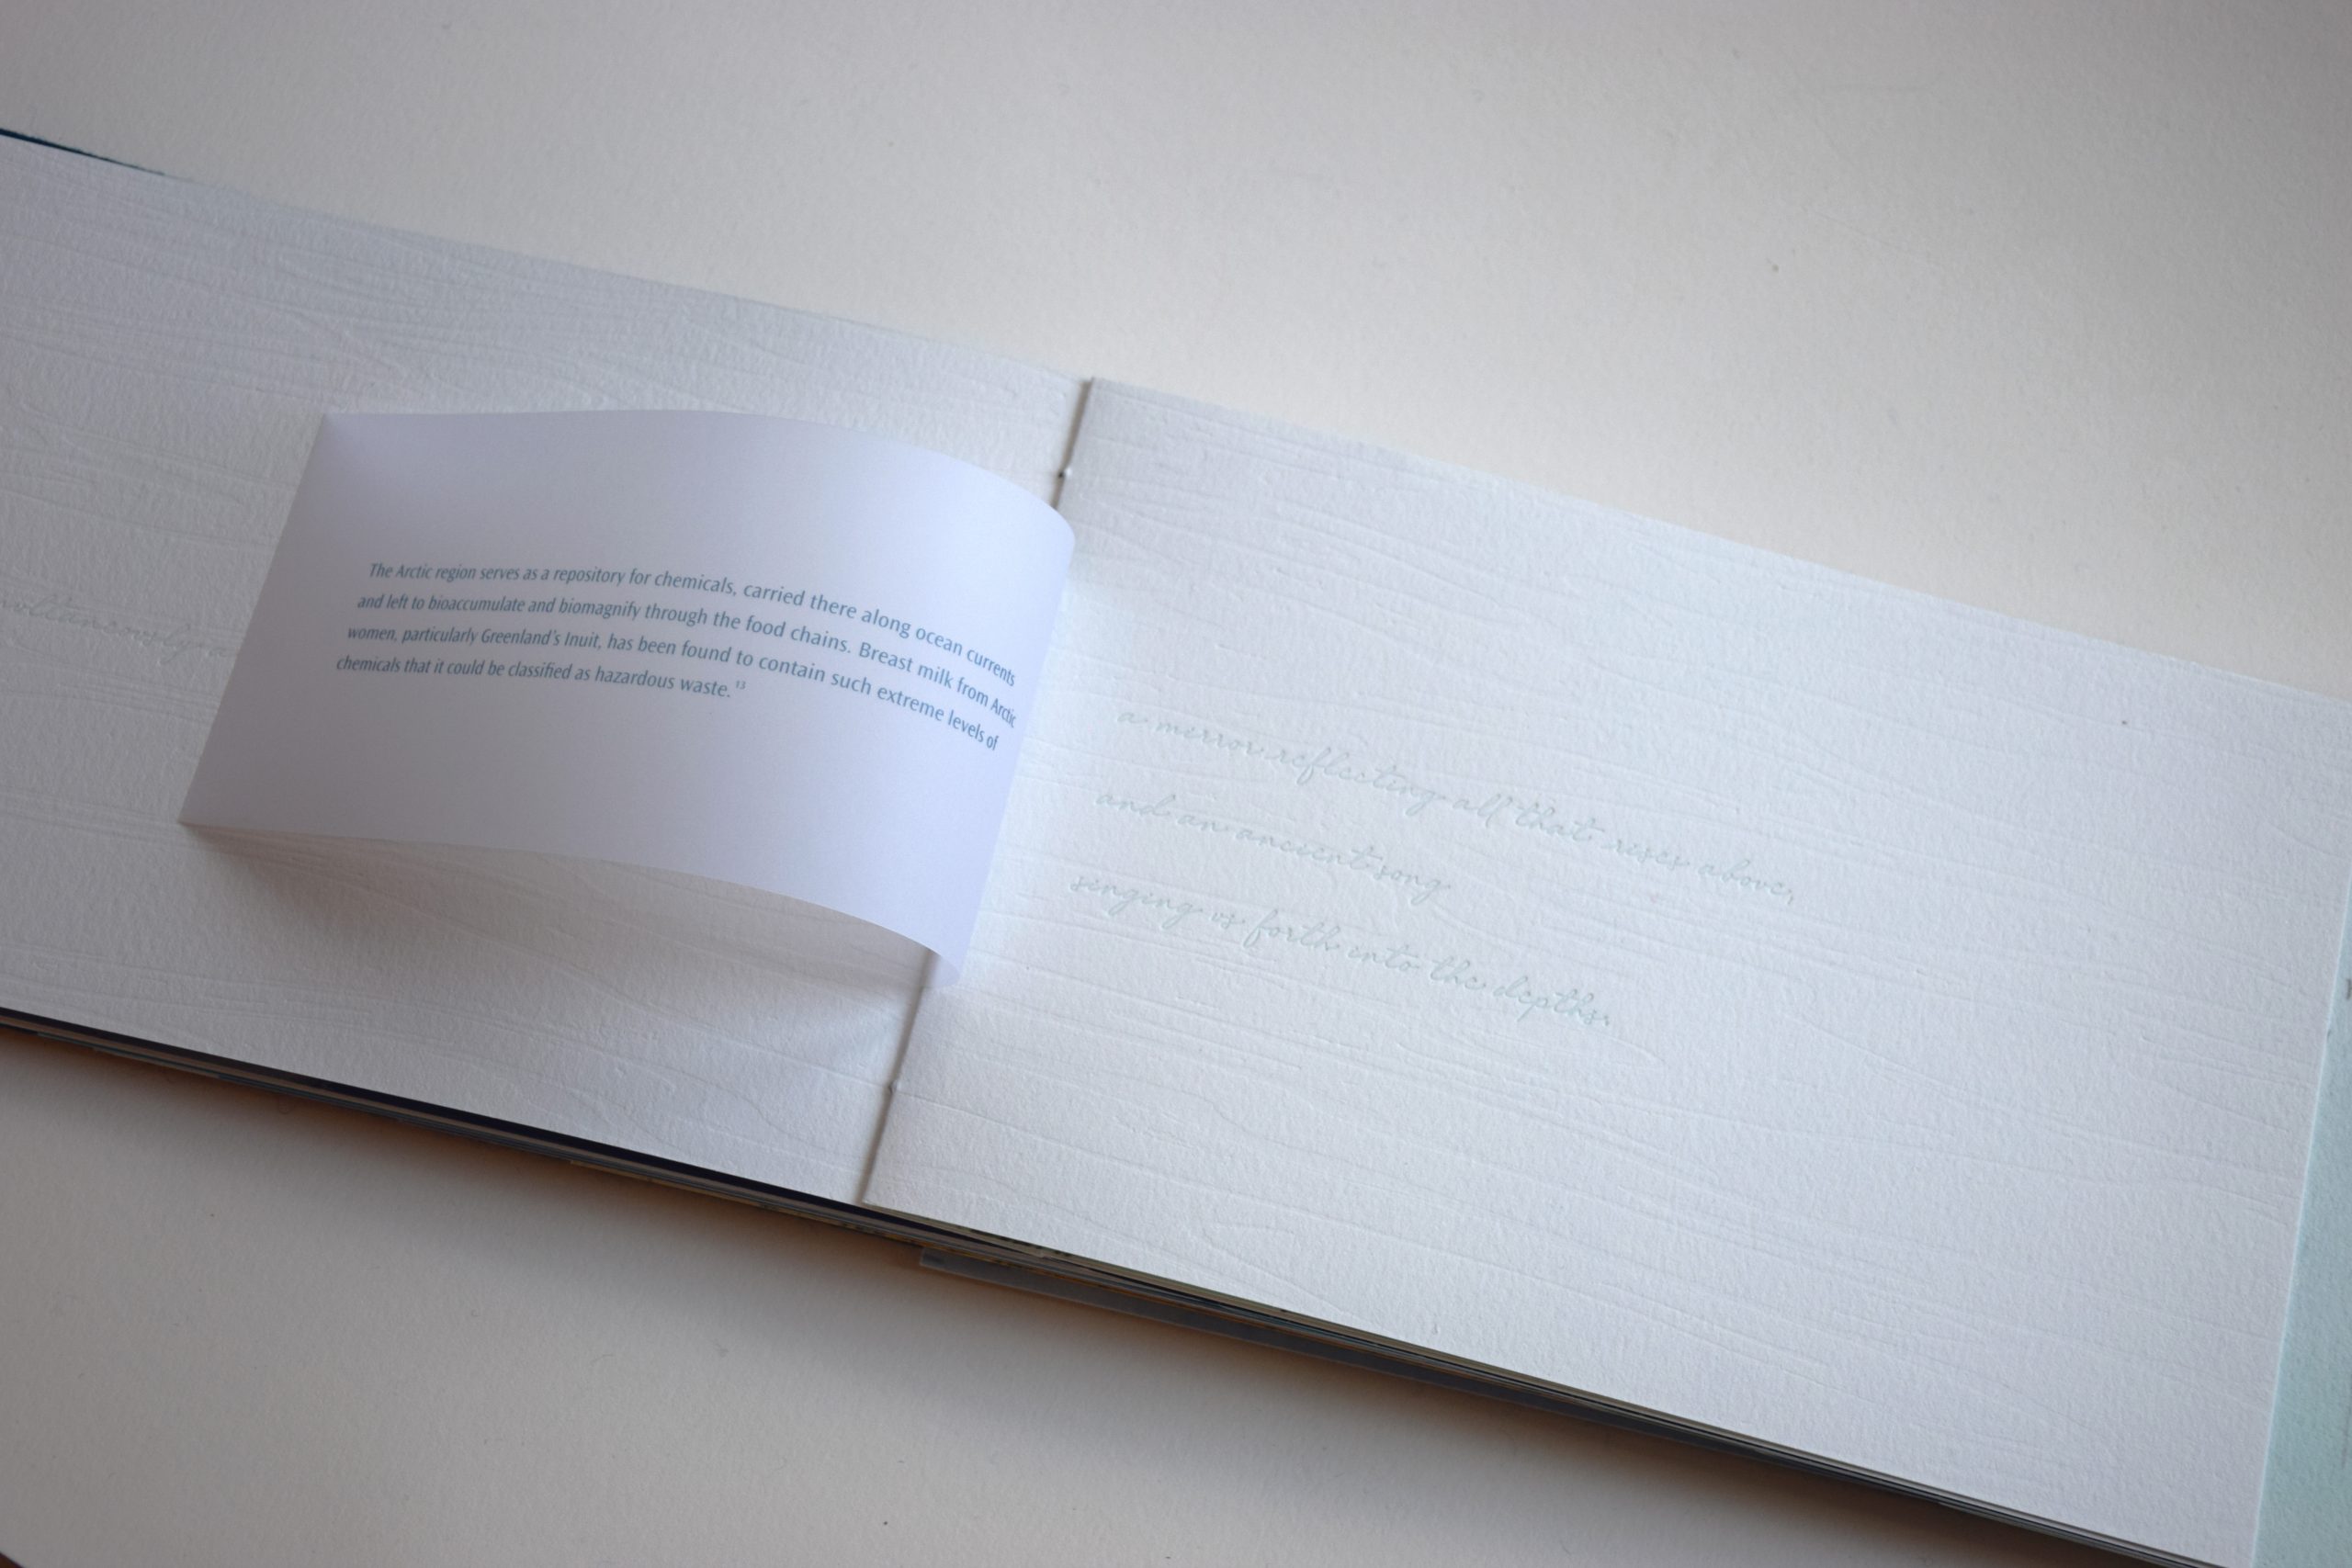 The Arctic region serves as a repository for chemicals, carried there along ocean currents
and left to bioaccumulate and biomagnify through the food chains. Breast milk from Arctic
women, particularly Greenland's Inuit, has been found to contain such extreme levels of
chemicals that it could be classified as hazardous waste. 13
a mirror reflecting all that rises above,
and an ancient song
singing us forth into the depths.